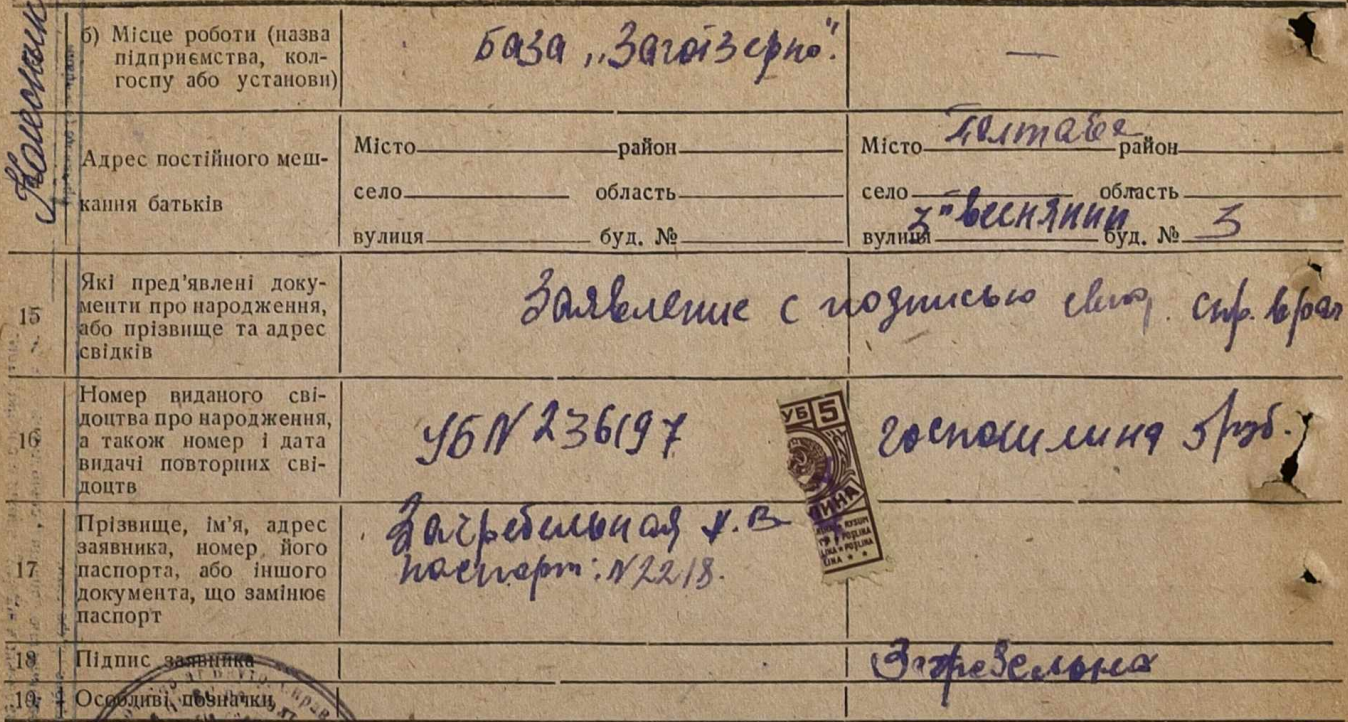 Колесник
б) Місце роботи (назва
підприємства, кол-
госпу або установи)
база „Заготзерно".
—
Адрес постійного меш-
кання батьків
Місто район
село область
вулиця буд. №
Місто Полтава район
село область
вулиця буд. № 3
15
Які пред'явлені доку-
менти про народження,
або прізвище та адрес
свідків
Заявление с подписью
16
Номер виданого сві-
доцтва про народження,
а також номер і дата
видачі повторних сві-
доцтв
УБ N 236197
УБ 5
госпошлина 5 руб.
17
Прізвище, ім'я, адрес
заявника, номер його
паспорта, або іншого
документа, що замінює
паспорт
Загребельная
паспорт: N 2218.
18
Підпис заявника
19
Особливі позначки